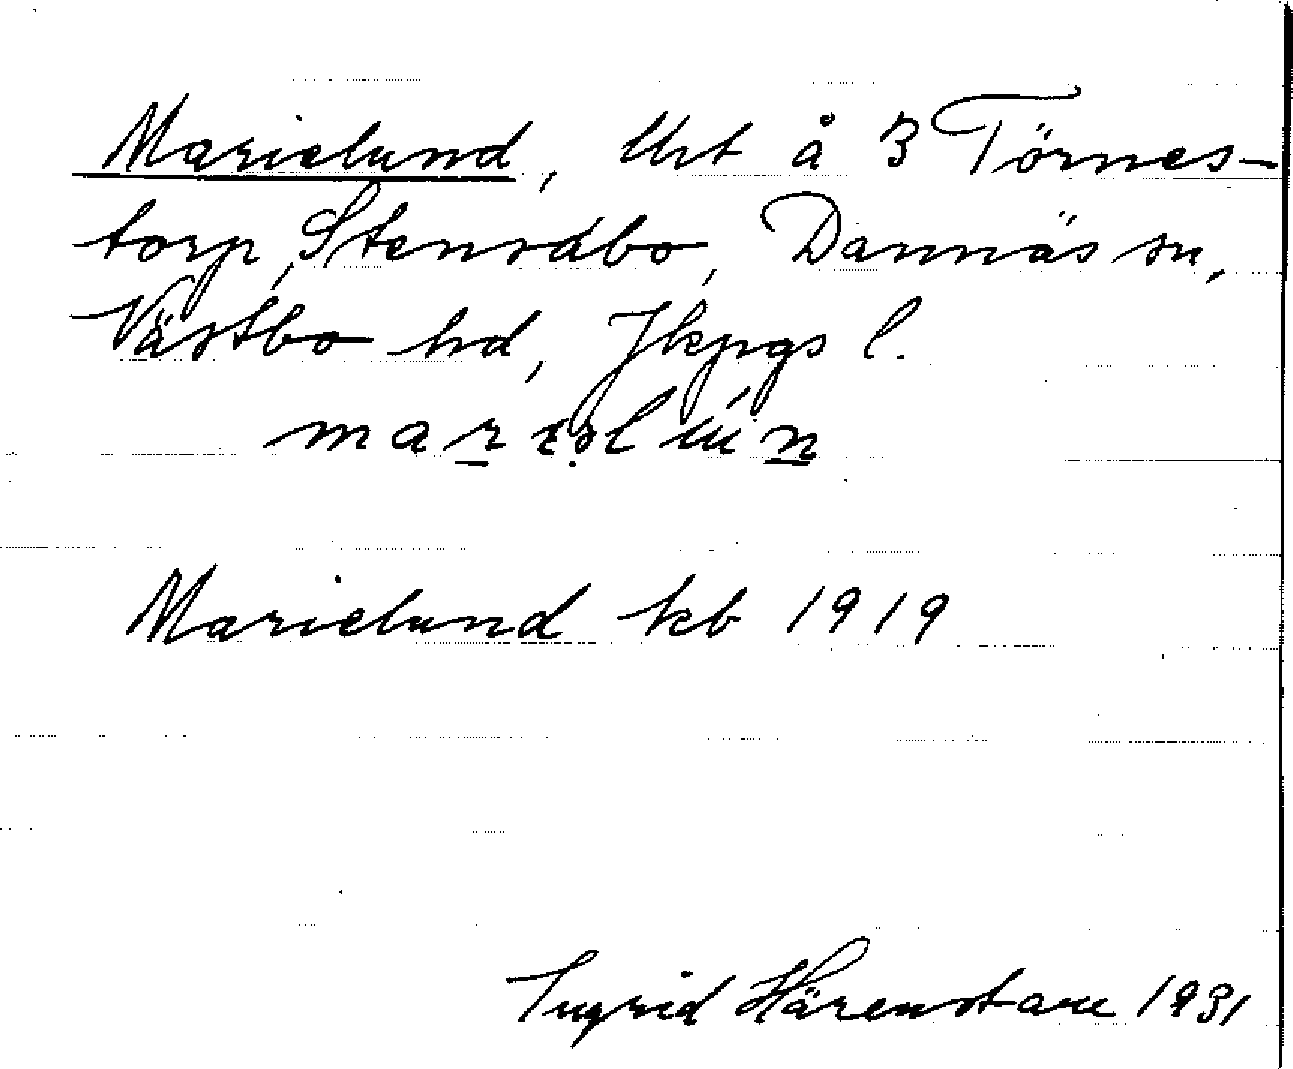 Marielund, lht å 3 Törnes-
torp, Stensdbo, Dannäs sn,
Västbo hd, Jkpgs l.
Marielund kb 1919
Ingrid Härenstam 1931